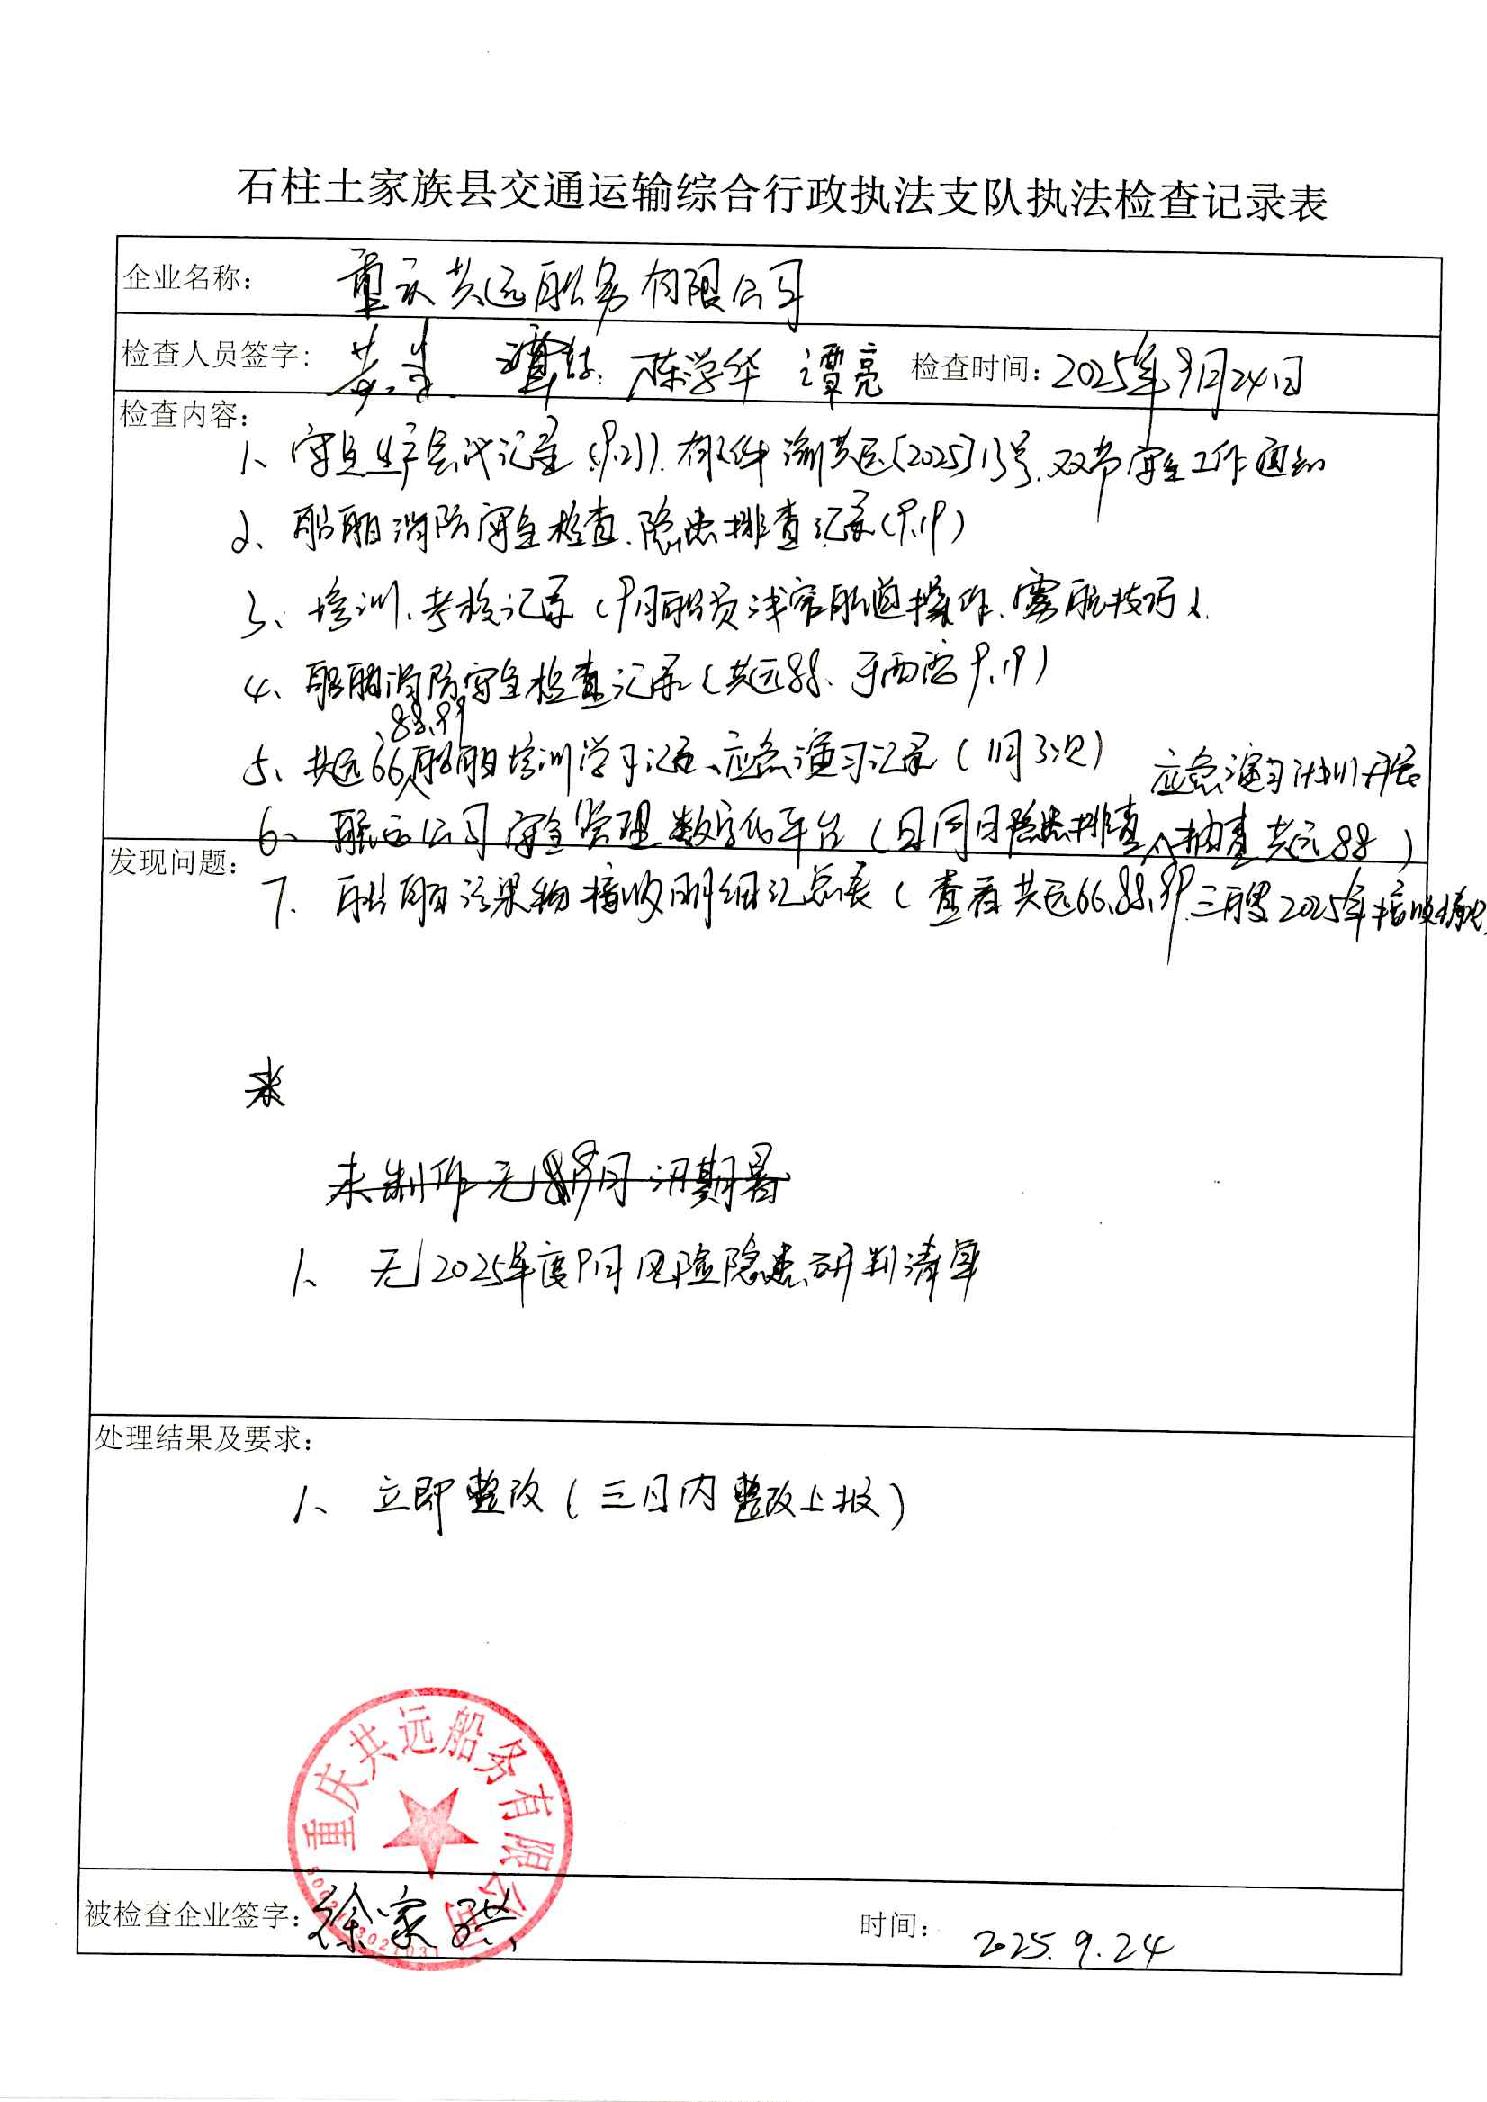 石柱土家族县交通运输综合行政执法支队执法检查记录表
企业名称： 重庆共远船务有限公司
检查人员签字： 陈学华 谭亮 检查时间：2025年9月24日
检查内容：
1、安全生产会议记录（9.2）).有文件渝共医[2025]13号.双节安全工作通知
2、船舶消防安全检查.隐患排查记录（9.19）
3、培训.考核记录（9月船员浅窄航道操作.雾航技巧）.
4、船舶消防安全检查记录（共远88、 9.19）
.88.99
5、共远66船舶培训学习记录、应急演习记录（1月3次） 应急演习计划开展
6、 船西公司安全管理数字化平台（日周月隐患排查、抽查共远88）
发现问题：
7、船舶污染物接收明细汇总表（查看共远66.88.99.三艘2025年接收
未
未制作无 9月汛期暑
1、无2025年度9月风险隐患研判清单
处理结果及要求：
1、立即整改（三日内整改上报）
重庆共远船务有限公司
被检查企业签字：徐家 时间： 2025.9.24